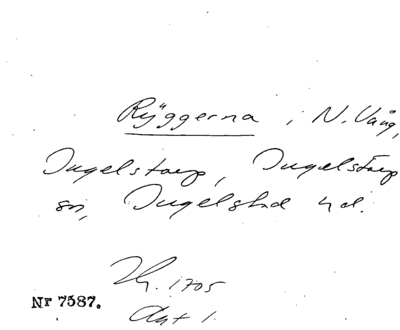 Ryggerna i N. Vång,
Ingelstorp, Ingelstorp
sn, Ingelstad hd.
1705
Nr 7587.
Akt 1.